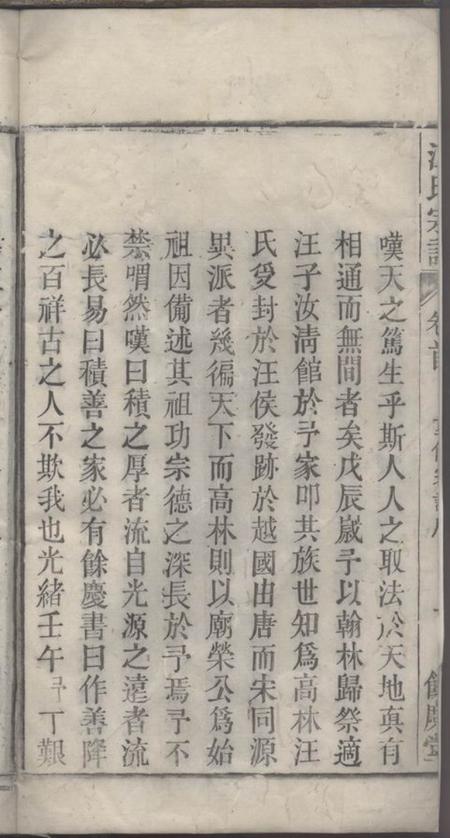 汪氏宗譜
卷首
餘慶堂
嘆天之篤生乎斯人人之取法於天地眞有
相通而無間者矣戊辰歲予以翰林歸祭適
汪子汝淸館於予家叩其族世知爲高林汪
氏受封於汪侯發跡於越國由唐而宋同源
異派者幾徧天下而高林則以廟榮公爲始
祖因備述其祖功宗德之深長於予焉予不
禁喟然嘆曰積之厚者流自光源之遠者流
必長易曰積善之家必有餘慶書曰作善降
之百祥古之人不欺我也光緒壬午予丁艱